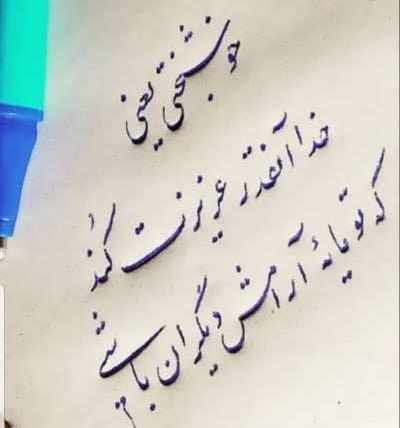 خوشبختی یعنی
خدا آنقدر عزیزت کُند
که تو مایهٔ آرامش دیگران باشی